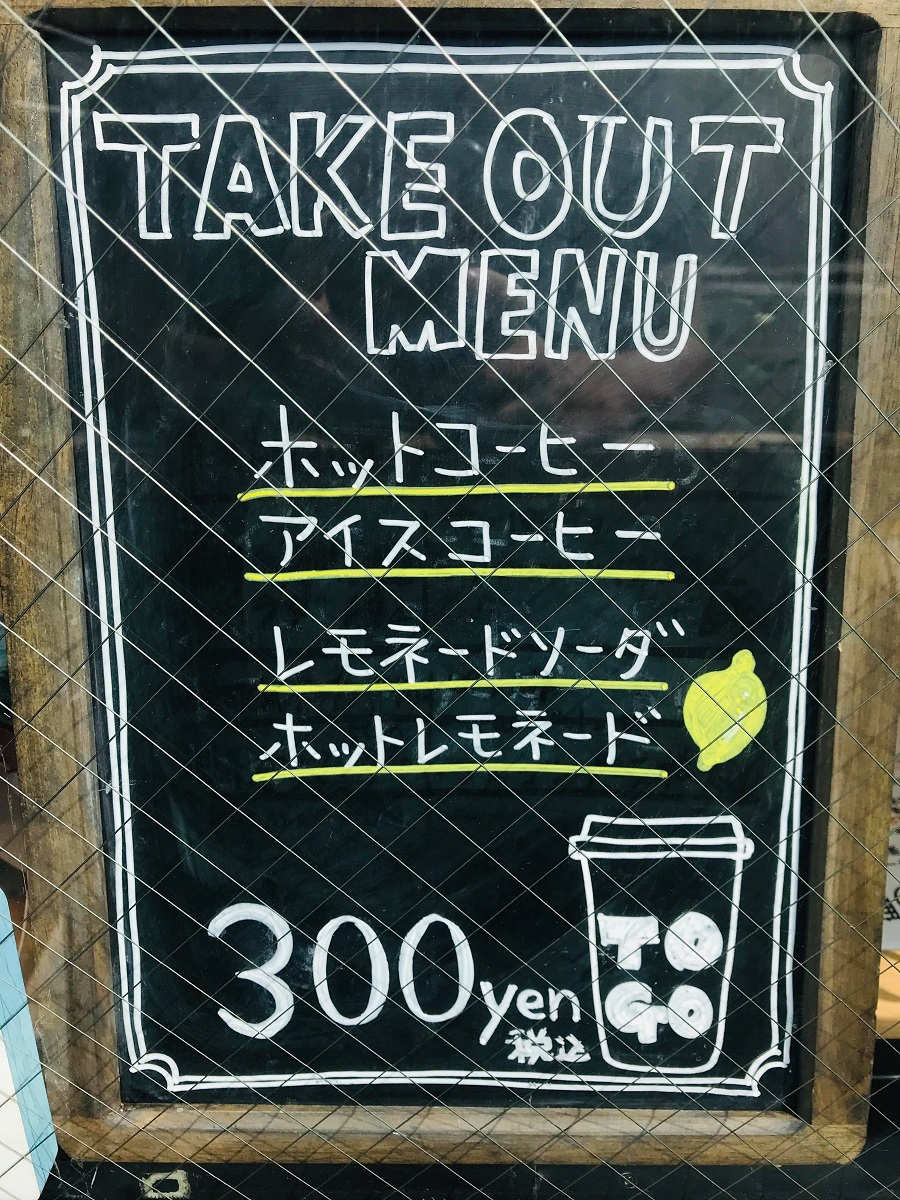 TAKE OUT
MENU
ホットコーヒー
アイスコーヒー
レモネードソーダ
ホットレモネード
300yen
税込
TO
GO